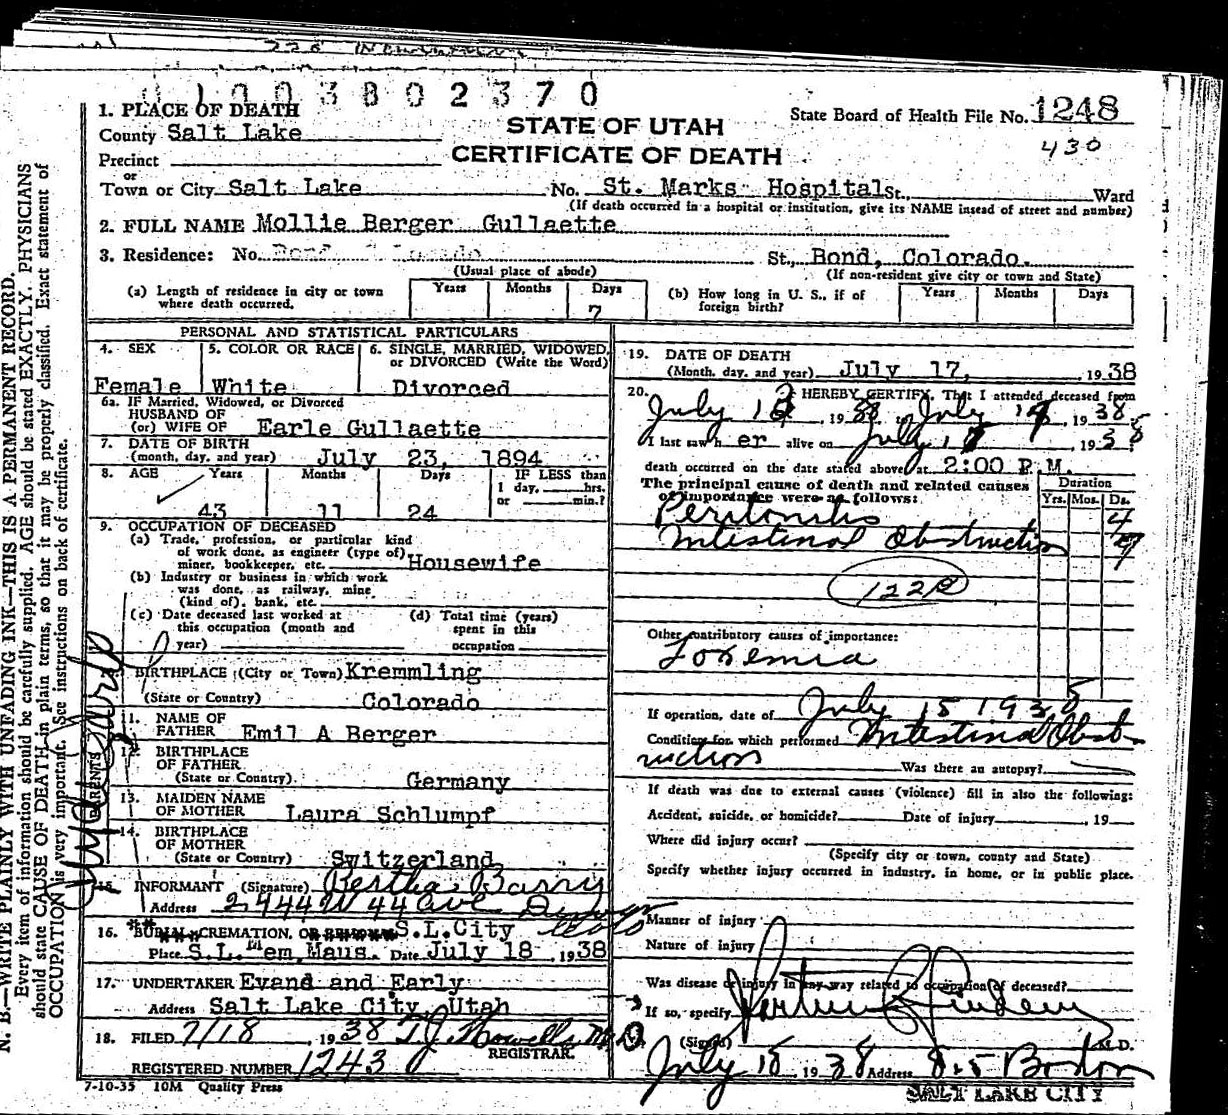 0100380 2370
1. PLACE OF DEATH
County Salt Lake
STATE OF UTAH
CERTIFICATE OF DEATH
State Board of Health File No. 1248
430
Precinct
or
Town or City Salt Lake No. St. Marks Hospital St., Ward
(If death occurred in a hospital or institution, give its NAME insead of street and number)
2. FULL NAME Mollie Berger Gullaette
3. Residence: No. St., Bond, Colorado.
(Usual place of abode) (If non-resident give city or town and State)
(a) Length of residence in city or town where death occurred. Years Months Days 7
(b) How long in U. S., if of foreign birth? Years Months Days
PERSONAL AND STATISTICAL PARTICULARS
4. SEX Female
5. COLOR OR RACE White
6. SINGLE, MARRIED, WIDOWED, or DIVORCED (Write the Word) Divorced
6a. IF Married, Widowed, or Divorced
HUSBAND OF
(or) WIFE OF Earle Gullaette
7. DATE OF BIRTH
(month, day, and year) July 23, 1894
8. AGE Years 43 Months 11 Days 24
IF LESS than
1 day, hrs.
or min.?
9. OCCUPATION OF DECEASED
(a) Trade, profession, or particular kind
of work done, as engineer (type of)
miner, bookkeeper, etc. Housewife
(b) Industry or business in which work
was done, as railway, mine
(kind of), bank, etc.
(c) Date deceased last worked at
this occupation (month and
year)
(d) Total time (years)
spent in this
occupation
BIRTHPLACE (City or Town) Kremmling
(State or Country) Colorado
PARENTS
11. NAME OF
FATHER Emil A Berger
12. BIRTHPLACE
OF FATHER
(State or Country) Germany
13. MAIDEN NAME
OF MOTHER Laura Schlumpf
14. BIRTHPLACE
OF MOTHER
(State or Country) Switzerland
15. INFORMANT (Signature) Bertha Barry
Address 2444 W 44 Ave Denver Colo
16. BURIAL, CREMATION, OR REMOVAL S.L.City
Place S.L. Mem Maus. Date July 18, 1938
17. UNDERTAKER Evans and Early
Address Salt Lake City, Utah
18. FILED 7/18, 1938 T.J. Howells M.D.
REGISTRAR.
REGISTERED NUMBER 1243
7-10-35 10M Quality Press
19. DATE OF DEATH
(Month, day, and year) July 17, 1938
20. I HEREBY CERTIFY, That I attended deceased from
July 1938, July 1938
I last saw her alive on July 17 1938
death occurred on the date stated above at 2:00 P.M.
The principal cause of death and related causes
of importance were as follows:
Duration
Yrs. Mos. Ds.
Peritonitis 4
Intestinal Obstruction 7
122B
Other contributory causes of importance:
Toxemia
If operation, date of July 15 1938
Condition for which performed Intestinal Obst-
ruction Was there an autopsy?
If death was due to external causes (violence) fill in also the following:
Accident, suicide, or homicide? Date of injury, 19
Where did injury occur?
(Specify city or town, county and State)
Specify whether injury occurred in industry, in home, or in public place.
Manner of injury
Nature of injury
Was disease or injury in any way related to occupation of deceased?
If so, specify
(Signed) M.D.
July 18 1938 Address Boston
SALT LAKE CITY
N. B.—WRITE PLAINLY WITH UNFADING INK—THIS IS A PERMANENT RECORD.
Every item of information should be carefully supplied. AGE should be stated EXACTLY. PHYSICIANS
should state CAUSE OF DEATH in plain terms, so that it may be properly classified. Exact statement of
OCCUPATION is very important. See instructions on back of certificate.